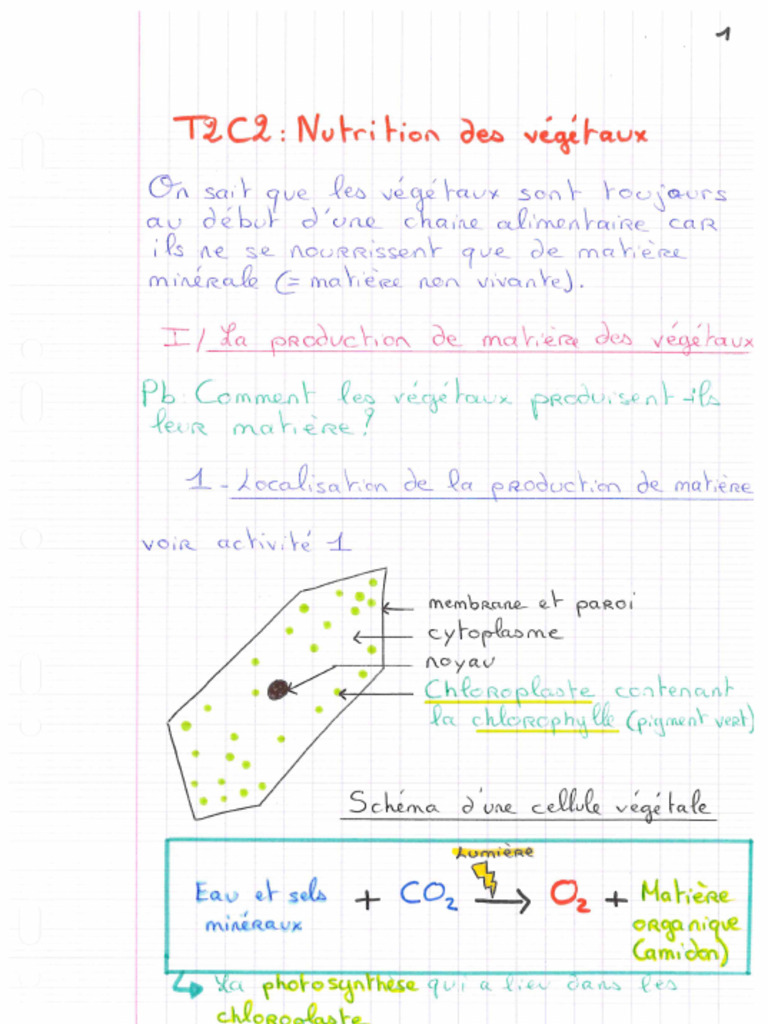 1
T2C2 : Nutrition des végétaux
On sait que les végétaux sont toujours
au début d'une chaine alimentaire car
ils ne se nourrissent que de matière
minérale (= matière non vivante).
I/ La production de matière des végétaux
Pb: Comment les végétaux produisent-ils
leur matière?
1 - Localisation de la production de matière
voir activité 1
membrane et paroi
cytoplasme
noyau
Chloroplaste contenant
la chlorophylle (pigment vert)
Schéma d'une cellule végétale
Lumière
Eau et sels minéraux + CO2 → O2 + Matière organique (amidon)
↳ La photosynthèse qui a lieu dans les
chloroplaste